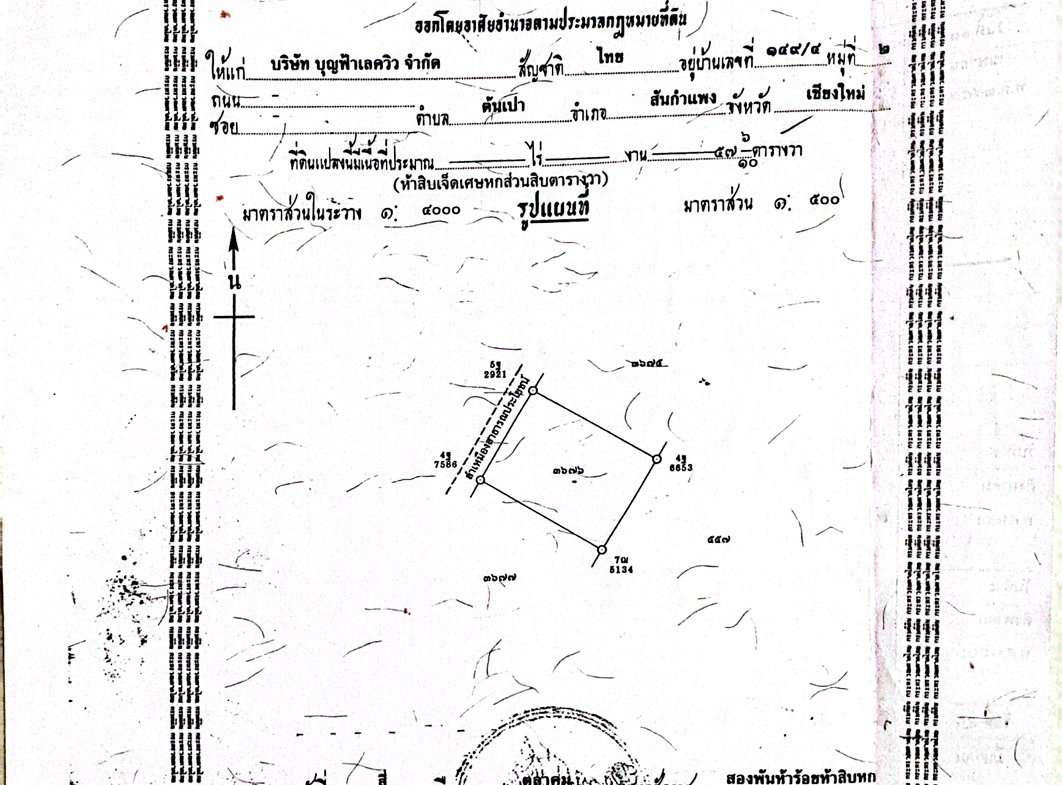 ออกโดยอาศัยอำนาจตามประมวลกฎหมายที่ดิน
ให้แก่ บริษัท บุญฟ้าเลควิว จำกัด สัญชาติ ไทย อยู่บ้านเลขที่ ๑๔๙/๔ หมู่ที่ ๒
ถนน - ตำบล ต้นเปา อำเภอ สันกำแพง จังหวัด เชียงใหม่
ซอย -
ที่ดินแปลงนี้มีเนื้อที่ประมาณ ไร่ งาน ๕๗ ๖/๑๐ ตารางวา
(ห้าสิบเจ็ดเศษหกส่วนสิบตารางวา)
มาตราส่วนในระวาง ๑: ๔๐๐๐ รูปแผนที่ มาตราส่วน ๑: ๕๐๐
น
5ฐ
2921
๓๖๗๕
ลำเหมืองสาธารณประโยชน์
4ฐ
7586
๓๖๗๖
4ฐ
6653
๕๕๗
7ฌ
5134
๓๖๗๗
ตุลาคม
สองพันห้าร้อยห้าสิบหก